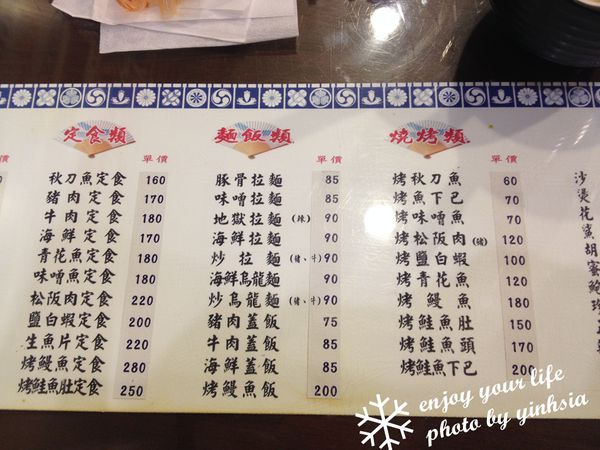 定食類
單價
秋刀魚定食 160
豬肉定食 170
牛肉定食 180
海鮮定食 170
青花魚定食 180
味噌魚定食 180
松阪肉定食 220
鹽白蝦定食 200
生魚片定食 220
烤鰻魚定食 280
烤鮭魚肚定食 250
麵飯類
單價
豚骨拉麵 85
味噌拉麵 85
地獄拉麵(辣) 90
海鮮拉麵 90
炒拉麵(豬、牛) 90
海鮮烏龍麵 90
炒烏龍麵(豬、牛) 90
豬肉蓋飯 75
牛肉蓋飯 85
海鮮蓋飯 85
烤鰻魚飯 200
燒烤類
單價
烤秋刀魚 60
烤魚下巴 70
烤味噌魚 70
烤松阪肉(豬) 120
烤鹽白蝦 100
烤青花魚 120
烤鰻魚 180
烤鮭魚肚 150
烤鮭魚頭 170
烤鮭魚下巴 200
沙
燙
花
鯊
胡
蜜
鮑
enjoy your life
photo by yinhsia